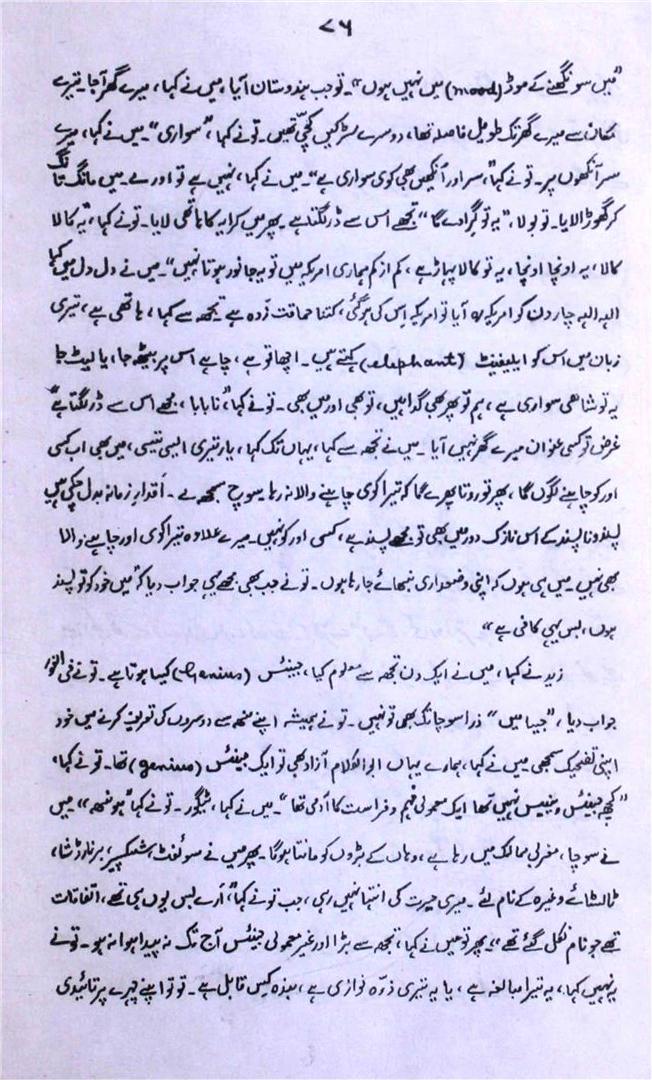 ۷۶
"میں سونگھنے کے موڑ (mood) میں نہیں ہوں"۔ تو جب ہندوستان آیا، میں نے کہا، میرے گھر آجا۔ تیرے
مکان سے میرے گھر تک طویل فاصلہ تھا، دوسرے سڑکیں کچّی تھیں۔ تو نے کہا، "سواری"۔ میں نے کہا، میرے
سر آنکھوں پر۔ تو نے کہا، "سر اور آنکھیں بھی کوی سواری ہے"۔ میں نے کہا، نہیں ہے تو اور لے۔ میں مانگ تانگ
کر گھوڑا لایا۔ تو بولا، "یہ تو گرادے گا" تجھے اس سے ڈر لگتا ہے۔ پھر میں کرایہ کا ہاتھی لایا۔ تو نے کہا، "یہ کالا
کالا، یہ اونچا اونچا، یہ تو کالا پہاڑ ہے، کم از کم ہماری امریکہ میں تو یہ جانور ہوتا نہیں"۔ میں نے دل دل میں کہا
الہ الہ چار دن کو امریکہ آیا تو امریکہ اِس کی ہو گئی، کتنا حماقت زدہ ہے تجھ سے کہا، ہاتھی ہے، تیری
زبان میں اس کو ایلیفینٹ (elephant) کہتے ہیں۔ اچھا تو ہے، چاہے اس پر بیٹھ جا، یا لیٹ جا
یہ تو شاھی سواری ہے، ہم تو پھر بھی گدا ہیں، تو بھی اور میں بھی۔ تو نے کہا، "نا بابا، مجھے اس سے ڈر لگتا ہے"
غرض تو کسی عنوان میرے گھر نہیں آیا۔ میں نے تجھ سے کہا، یہاں تک کہا، یار تیری ایسی تیسی، میں بھی اب کسی
اور کو چاہنے لگوں گا، پھر تو روتا پھرے گا کہ تیرا کوی چاہنے والا نہ رہا۔ سوچ سمجھ لے۔ اَقدارِ زمانہ بدل چکی ہیں
پسند و نا پسند کے اس نازک دور میں بھی تو مجھے پسند ہے، کسی اور کو نہیں۔ میرے علاوہ تیرا کوی اور چاہنے والا
بھی نہیں۔ میں ہی ہوں کہ اپنی وضعداری نبھائے جا رہا ہوں۔ تو نے جب بھی مجھے یہی جواب دیا کہ "میں خود کو تو پسند
ہوں، بس یہی کافی ہے"
زید نے کہا، میں نے ایک دن تجھ سے معلوم کیا، جینئس (Genius) کیسا ہوتا ہے۔ تو نے فی الفور
جواب دیا، "جیسا میں" ذرا سوچا تک بھی تو نہیں۔ تو نے ہمیشہ اپنے منھ سے دوسروں کی تعریف کرنے میں خود
اپنی تضحیک سمجھی میں نے کہا، ہمارے یہاں ابوالکلام آزاد بھی تو ایک جینئس (genius) تھا۔ تو نے کہا،
"کچھ جینئس وینیس نہیں تھا ایک معمولی فہم و فراست کا آدمی تھا"۔ میں نے کہا، ٹیگور۔ تو نے کہا "ہونھہ"، میں
نے سوچا، مغربی ممالک میں رہا ہے، وہاں کے بڑوں کو مانتا ہوگا۔ پھر میں نے سوئفٹ، شیکسپیر، برنارڈ شا،
ٹالسٹائے وغیرہ کے نام لئے۔ میری حیرت کی انتہا نہیں رہی، جب تو نے کہا، "اَرے بس یوں ہی تھے، اتفاقات
تھے جو نام نکل گئے تھے"، پھر تو میں نے کہا، تجھ سے بڑا اور غیر معمولی جینئس آج تک نہ پیدا ہوا نہ ہو۔ تو نے
یہ نہیں کہا، یہ تیرا مبالغہ ہے، یا یہ تیری ذرّہ نوازی ہے، بندہ کس قابل ہے۔ تو تو اپنے چہرے پر تائیدی